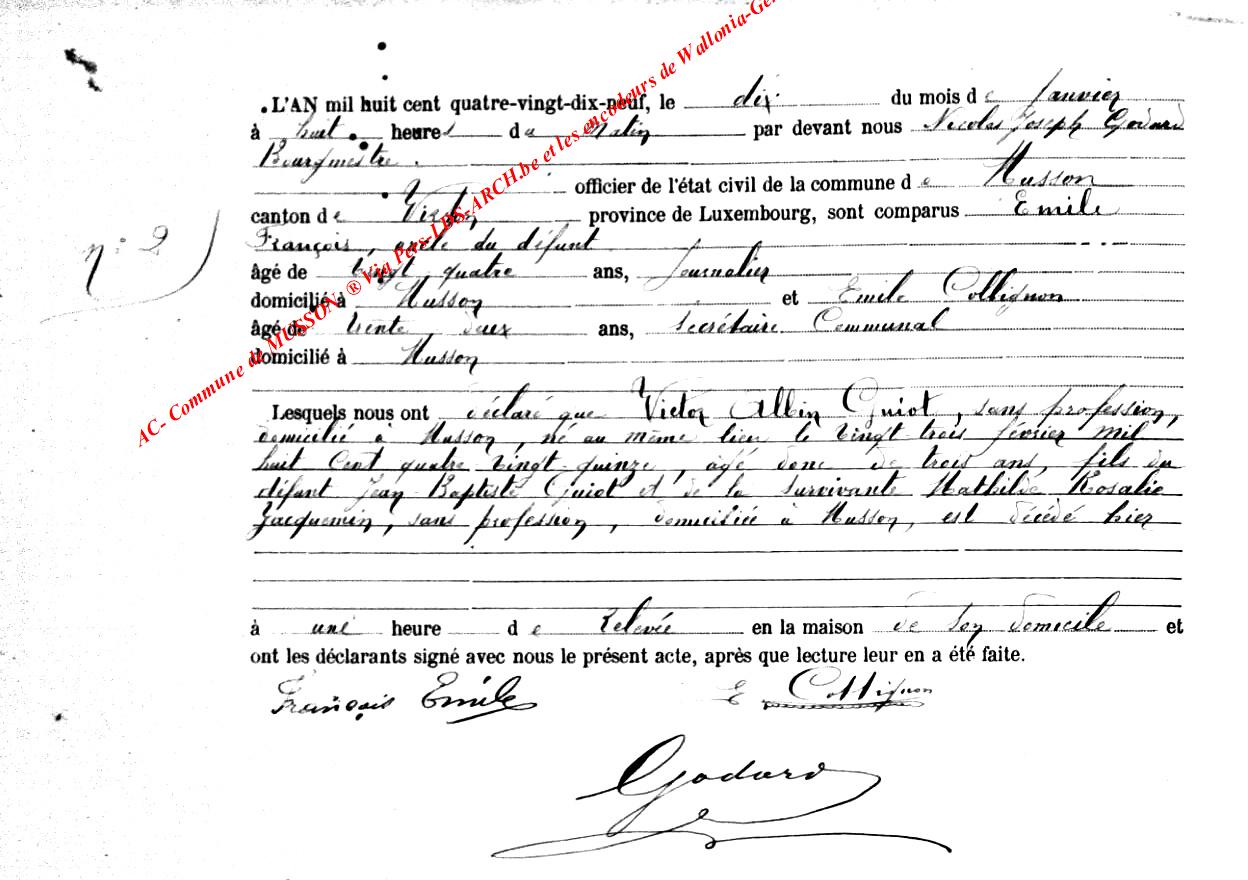 L'AN mil huit cent quatre-vingt-dix-neuf, le dix du mois de Janvier
à huit heures du Matin par devant nous Nicolas Joseph Godard
Bourgmestre.
officier de l'état civil de la commune de Musson
canton de Virton province de Luxembourg, sont comparus Emile
n° 2
François, oncle du défunt
âgé de vingt quatre ans, Journalier
domicilié à Musson et Emile Collignon
âgé de trente deux ans, Secrétaire Communal
domicilié à Musson
AC- Commune de MUSSON ® Via Pers-LDS-ARCH.be et les encodeurs de Wallonia-Ge
Lesquels nous ont déclaré que Victor Albin Guiot, sans profession,
domicilié à Musson, né au même lieu le vingt trois février mil
huit cent quatre vingt quinze, âgé donc de trois ans, fils du
défunt Jean Baptiste Guiot et de la survivante Mathilde Rosalie
Jacquemin, sans profession, domiciliée à Musson, est décédé hier
à une heure de Relevée en la maison de son domicile et
ont les déclarants signé avec nous le présent acte, après que lecture leur en a été faite.
François Emile E Collignon
Godard